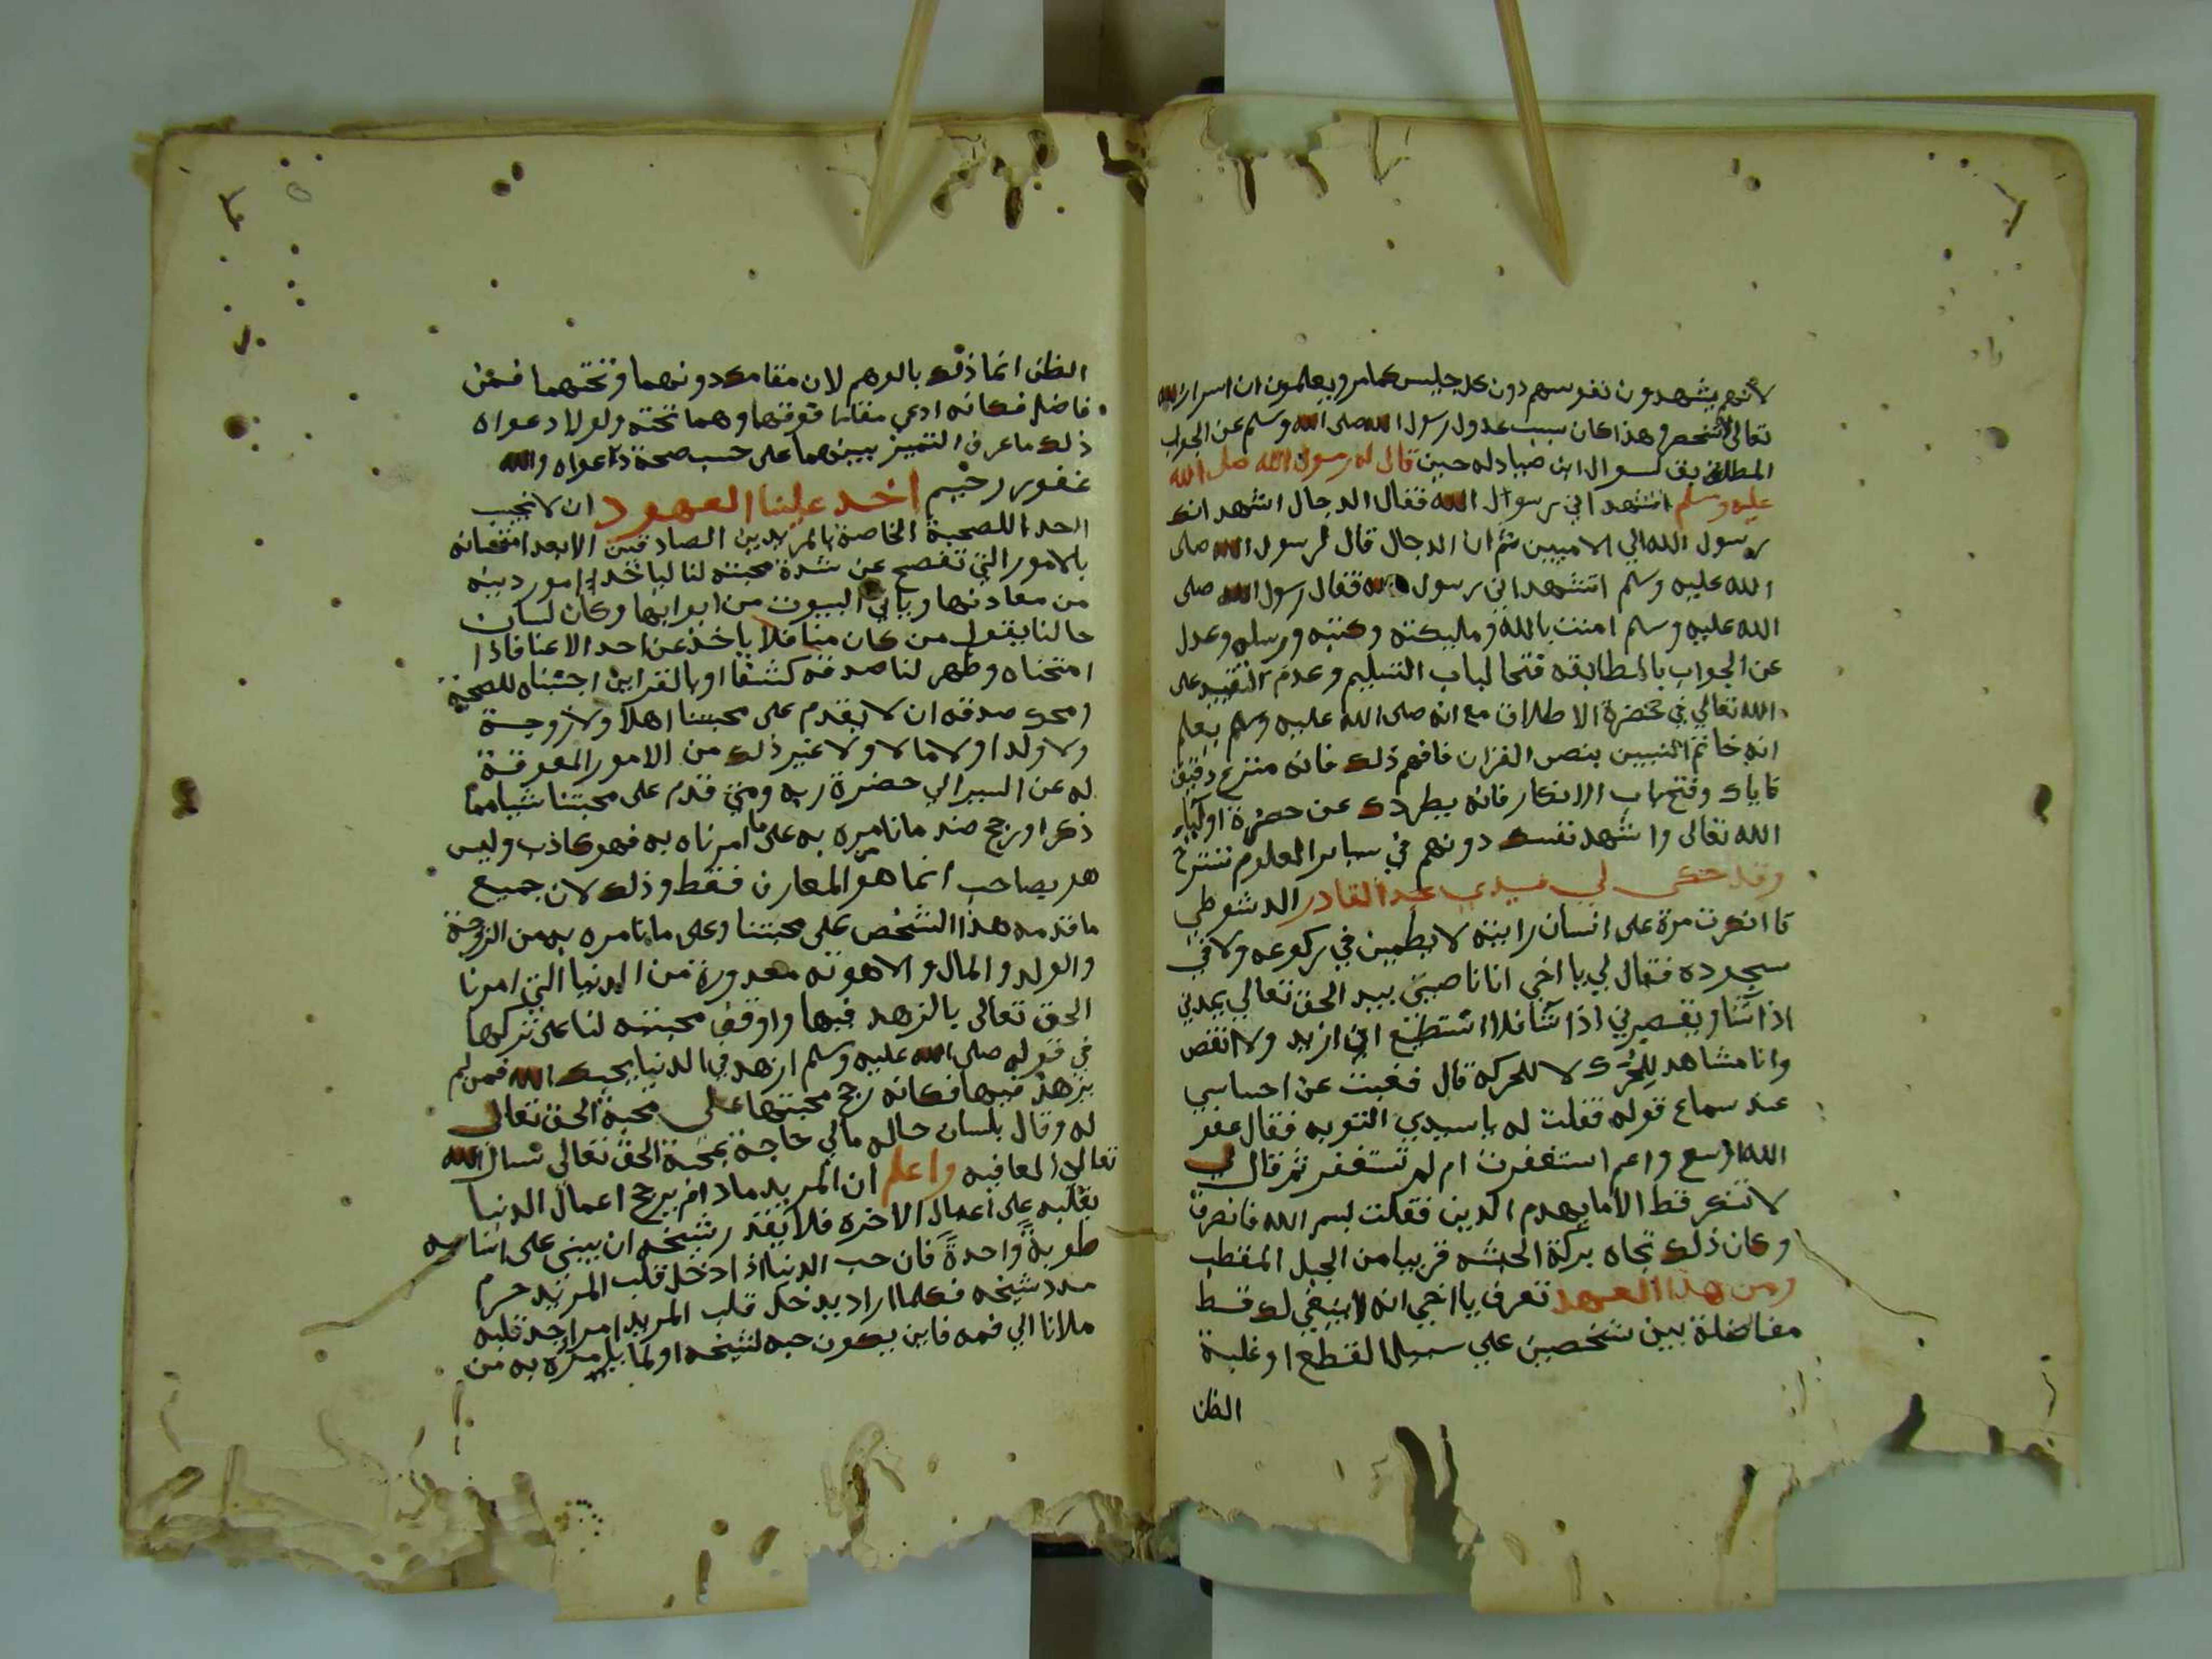 لانهم يشهدون نفوسهم دون كل جليس كما مر ويعلمون ان اسرار الله
تعالى لا تنحصر وهذا كان سبب عدول رسول الله صلى الله وسلم عن الجواب
المطابق لسوال ابن صياد له حين قال له رسول الله صلى الله
عليه وسلم اتشهد اني رسول الله فقال الدجال اشهد انك
رسول الله الي الاميين ثم ان الدجال قال لرسول الله صلى
الله عليه وسلم اتشهد اني رسول الله فقال رسول الله صلى
الله عليه وسلم امنت بالله وملايكته وكتبه ورسله وعدل
عن الجواب بالمطابقه فتحا لباب التسليم وعدم التقييد على
الله تعالي في حضرة الاطلاق مع انه صلى الله عليه وسلم يعلم
انه خاتم النبيين بنص القران فافهم ذلك فانه منزع دقيق
فاياك وفتح باب الانكار فانه يطردك عن حضرة اوليا
الله تعالى واشهد نفسك دونهم في ساير العلوم تسترح
وقد حكى لي سيدي عبد القادر الدشوطي
قا انكرت مرة على انسان رايته لا يطمين في ركوعه ولا في
سجوده فقال لي يا اخي انا ناصيتي بيد الحق تعالي يمدني
اذا شا ويقصرني اذا شا فلا استطيع ان ازيد ولا انقص
وانا مشاهد للمحرك لا للحركه قال فغبت عن احساسي
عند سماع قوله فقلت له يا سيدي التوبه فقال عفو
الله اوسع واعم استغفرت ام لم تستغفر ثم قال لي
لا تنكر قط الا ما يهدم الدين فقلت بسم الله فانصرف
وكان ذلك تجاه بركة الحبش قريبا من الجبل المقطب
ومن هذا العهد تعرف يا اخي انه لا ينبغي لك قط
مفاضلة بين شخصين علي سبيل القطع او غلبة
الظن
الظن انما ذلك بالوهم لان مقامك دونهما وتحتهما فمن
فاضل فكانه ادعي مقاما فوقهما وهما تحته ولولا دعواه
ذلك ما عرف التمييز بينهما على حسب صحة دعواه والله
غفور رحيم اخذ علينا العهود ان لا نجيب
احدا للصحبة الخاصة بالمريدين الصادقين الا بعد امتحانه
بالامور التي تفصح عن شدة محبته لنا لياخذ امور دينه
من معادنها وياتي البيوت من ابوابها وكان لسان
حالنا يقول من كان منا فلا ياخذ عن احد الا عنا فاذا
امتحناه وظهر لنا صدقه كشفا او بالقراين اجبناه للصحبة
ومحك صدقه ان لا يقدم على محبتنا اهلا ولا زوجة
ولا ولدا ولا مالا ولا غير ذلك من الامور المعوقة
له عن السير الي حضرة ربه ومتي قدم على محبتنا شيا مما
ذكر او رجح ضد ما نامره به على ما امرناه به فهو كاذب وليس
هو بصاحب انما هو من المعارف فقط وذلك لان جميع
ما قدمه هذا الشخص على محبتنا وعلى ما نامره به من الزوجة
والولد والمال والاهوية معدودة من الدنيا التي امرنا
الحق تعالى بالزهد فيها واوقف محبته لنا على تركها
في قوله صلى الله عليه وسلم ازهد في الدنيا يحبك الله فمن لم
يزهد فيها فكانه رجح محبتها على محبة الحق تعالى
له وقال بلسان حاله مالي حاجة بمحبة الحق تعالي نسال الله
تعالي المعافيه واعلم ان المريد ما دام يرجح اعمال الدنيا
بقلبه على اعمال الاخره فلا يقدر شيخه ان يبني على اساسه
طوبة واحدة فان حب الدنيا اذا دخل قلب المريد حرم
مدد شيخه فكلما اراد يدخل قلب المريد امرا وجد قلبه
ملانا الي فمه فاين يكون حبه لشيخه او لما يامره به من